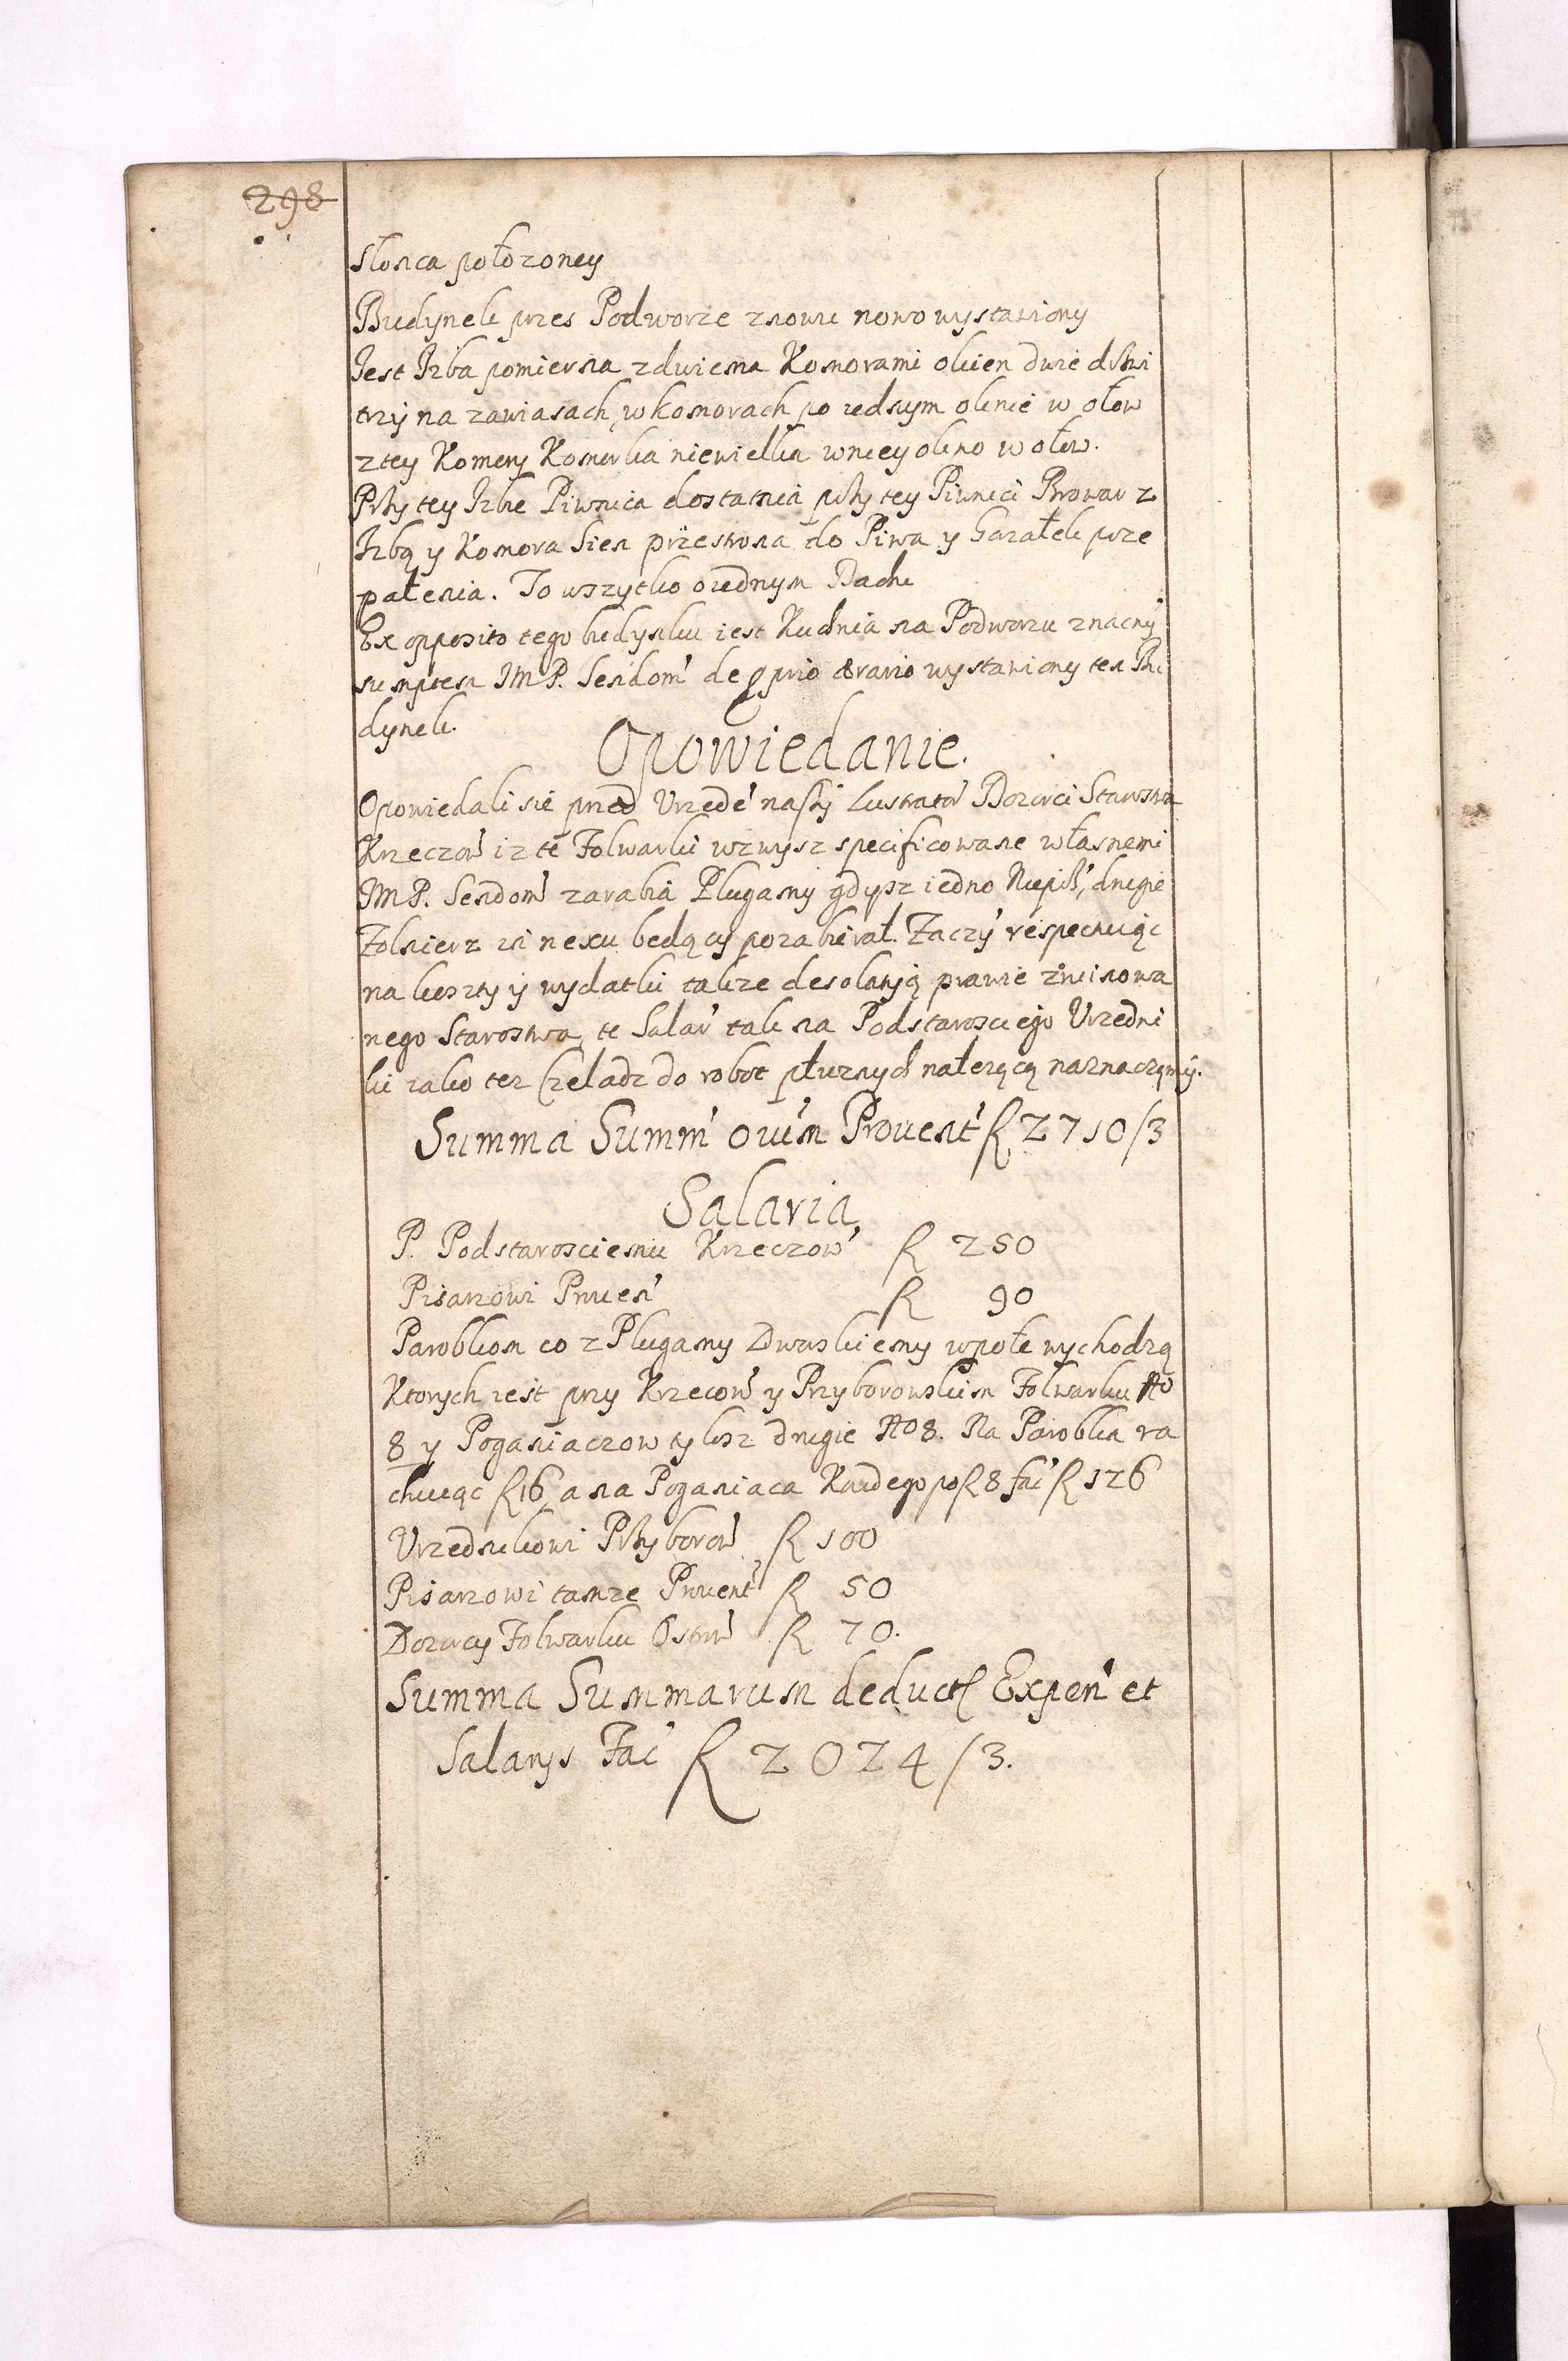 298
słonca położoney
Budynek przes Podworze znowu nowo wystawiony
Jest Izba pomierna zdwiema Komorami okien dwie drzwi
trzy na zawiasach, w komorach po iednym oknie w ołow
ztey Komory Komorka niewielka wniey okno w ołow.
Przy tey Izbie Piwnica dostatnia przy tey Piwnici Browar z
Izbą y Komora Sien przestrona do Piwa y Gorzałek prze
palenia. To wszytko o iednym Dachu
Ex opposito tego budynku iest Kuchnia na Podworzu znacny
sumptem JMP. Sendom' de pprio aerario wystawiony ten Bu
dynek.
Opowiedanie.
Opowiedali sie przed Urzede' naszy' Lustrator' Dozorci Starostwa
Krzeczow' iz te Folwarki wzwysz specificowane własnemi
JMP. Sendom' zarabia Plugamy gdysz iedno drugie
Zolnierz in nexu bedący pozabierał. Zaczy' respectuiąc
na koszty y wydatki takze desolatyą prawie zruinowa
nego Starostwa, te Salar' tak na Podstarosciego Urzedni
ki iako tez Czeladz do robot płuznych należącą naznaczamy.
Summa Summ' oui'n Prouent' R 2710/3
Salaria
P. Podstarosciemu Krzeczow' R 250
Pisarzowi Prouen' R 90
Parobkom co z Plugamy Dworskiemy wpole wychodzą
Ktorych iest przy Krzecow' y Przyborowskim Folwarku No
8 y Poganiaczow tylosz drugie No 8. Na Parobka ra
chuiąc R 16, a na Poganiaca Kazdego po R 8 fac' R 126
Urzednikowi Przyborow' R 100
Pisarzowi tamze Prouent' R 50
Dozorcy Folwarku Ostrow' R 70.
Summa Summarum deduct Expen' et
Salarys Fac' R 2024/3.